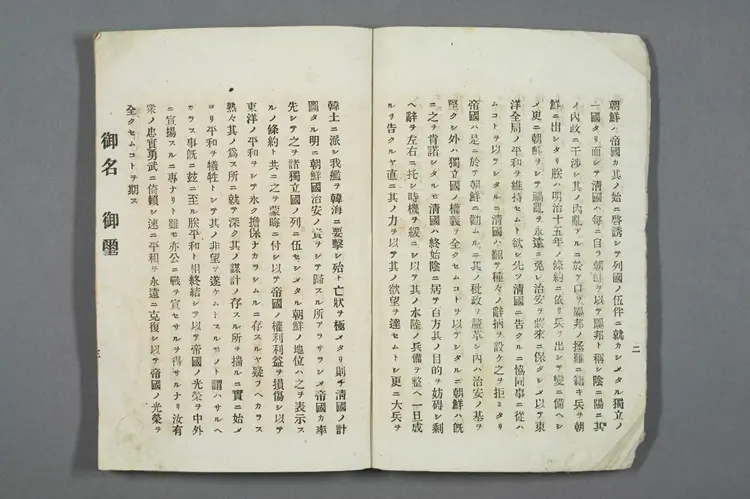 二
朝鮮ハ帝國カ其ノ始ニ啓誘シテ列國ノ伍伴ニ就カシメタル獨立ノ
一國タリ而シテ清國ハ毎ニ自ラ朝鮮ヲ以テ屬邦ト稱シ陰ニ陽ニ其
ノ内政ニ干渉シ其ノ内亂アルニ於テ口ヲ屬邦ノ拯難ニ籍キ兵ヲ朝
鮮ニ出シタリ朕ハ明治十五年ノ條約ニ依リ兵ヲ出シテ變ニ備ヘシ
メ更ニ朝鮮ヲシテ禍亂ヲ永遠ニ免レ治安ヲ將來ニ保タシメ以テ東
洋全局ノ平和ヲ維持セムト欲シ先ツ清國ニ告クルニ協同事ニ從ハ
ムコトヲ以テシタルニ清國ハ翻テ種々ノ辭抦ヲ設ケ之ヲ拒ミタリ
帝國ハ是ニ於テ朝鮮ニ勸ムルニ其ノ秕政ヲ釐革シ内ハ治安ノ基ヲ
堅クシ外ハ獨立國ノ權義ヲ全クセムコトヲ以テシタルニ朝鮮ハ既
ニ之ヲ肯諾シタルモ清國ハ終始陰ニ居テ百方其ノ目的ヲ妨碍シ剩
ヘ辭ヲ左右ニ托シ時機ヲ緩ニシ以テ其ノ水陸ノ兵備ヲ整ヘ一旦成
ルヲ告クルヤ直ニ其ノ力ヲ以テ其ノ欲望ヲ達セムトシ更ニ大兵ヲ
韓土ニ派シ我艦ヲ韓海ニ要擊シ殆ト亡狀ヲ極メタリ則チ清國ノ計
圖タル明ニ朝鮮國治安ノ責ヲシテ歸スル所アラサラシメ帝國カ率
先シテ之ヲ諸獨立國ノ列ニ伍セシメタル朝鮮ノ地位ハ之ヲ表示ス
ルノ條約ト共ニ之ヲ蒙晦ニ付シ以テ帝國ノ權利利益ヲ損傷シ以テ
東洋ノ平和ヲシテ永ク擔保ナカラシムルニ存スルヤ疑フヘカラス
熟々其ノ爲ス所ニ就テ深ク其ノ謀計ノ存スル所ヲ揣ルニ實ニ始メ
ヨリ平和ヲ犠牲トシテ其ノ非望ヲ遂ケムトスルモノト謂ハサルヘ
カラス事既ニ玆ニ至ル朕平和ト相終結シテ以テ帝國ノ光榮ヲ中外
ニ宣揚スルニ專ナリト雖モ亦公ニ戰ヲ宣セサルヲ得サルナリ汝有
衆ノ忠實勇武ニ倚賴シ速ニ平和ヲ永遠ニ克復シ以テ帝國ノ光榮ヲ
全クセムコトヲ期ス
御名　御璽
三